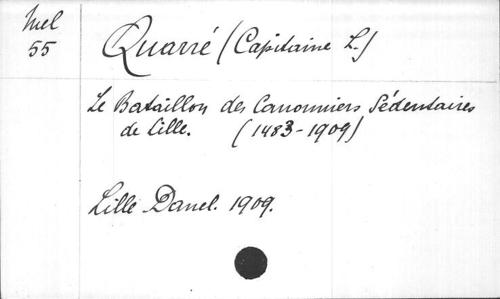 Mel
55
Quarré (Capitaine L.)
Le Bataillon des Canonniers Sédentaires
de Lille. (1483-1909)
Lille Danel. 1909.